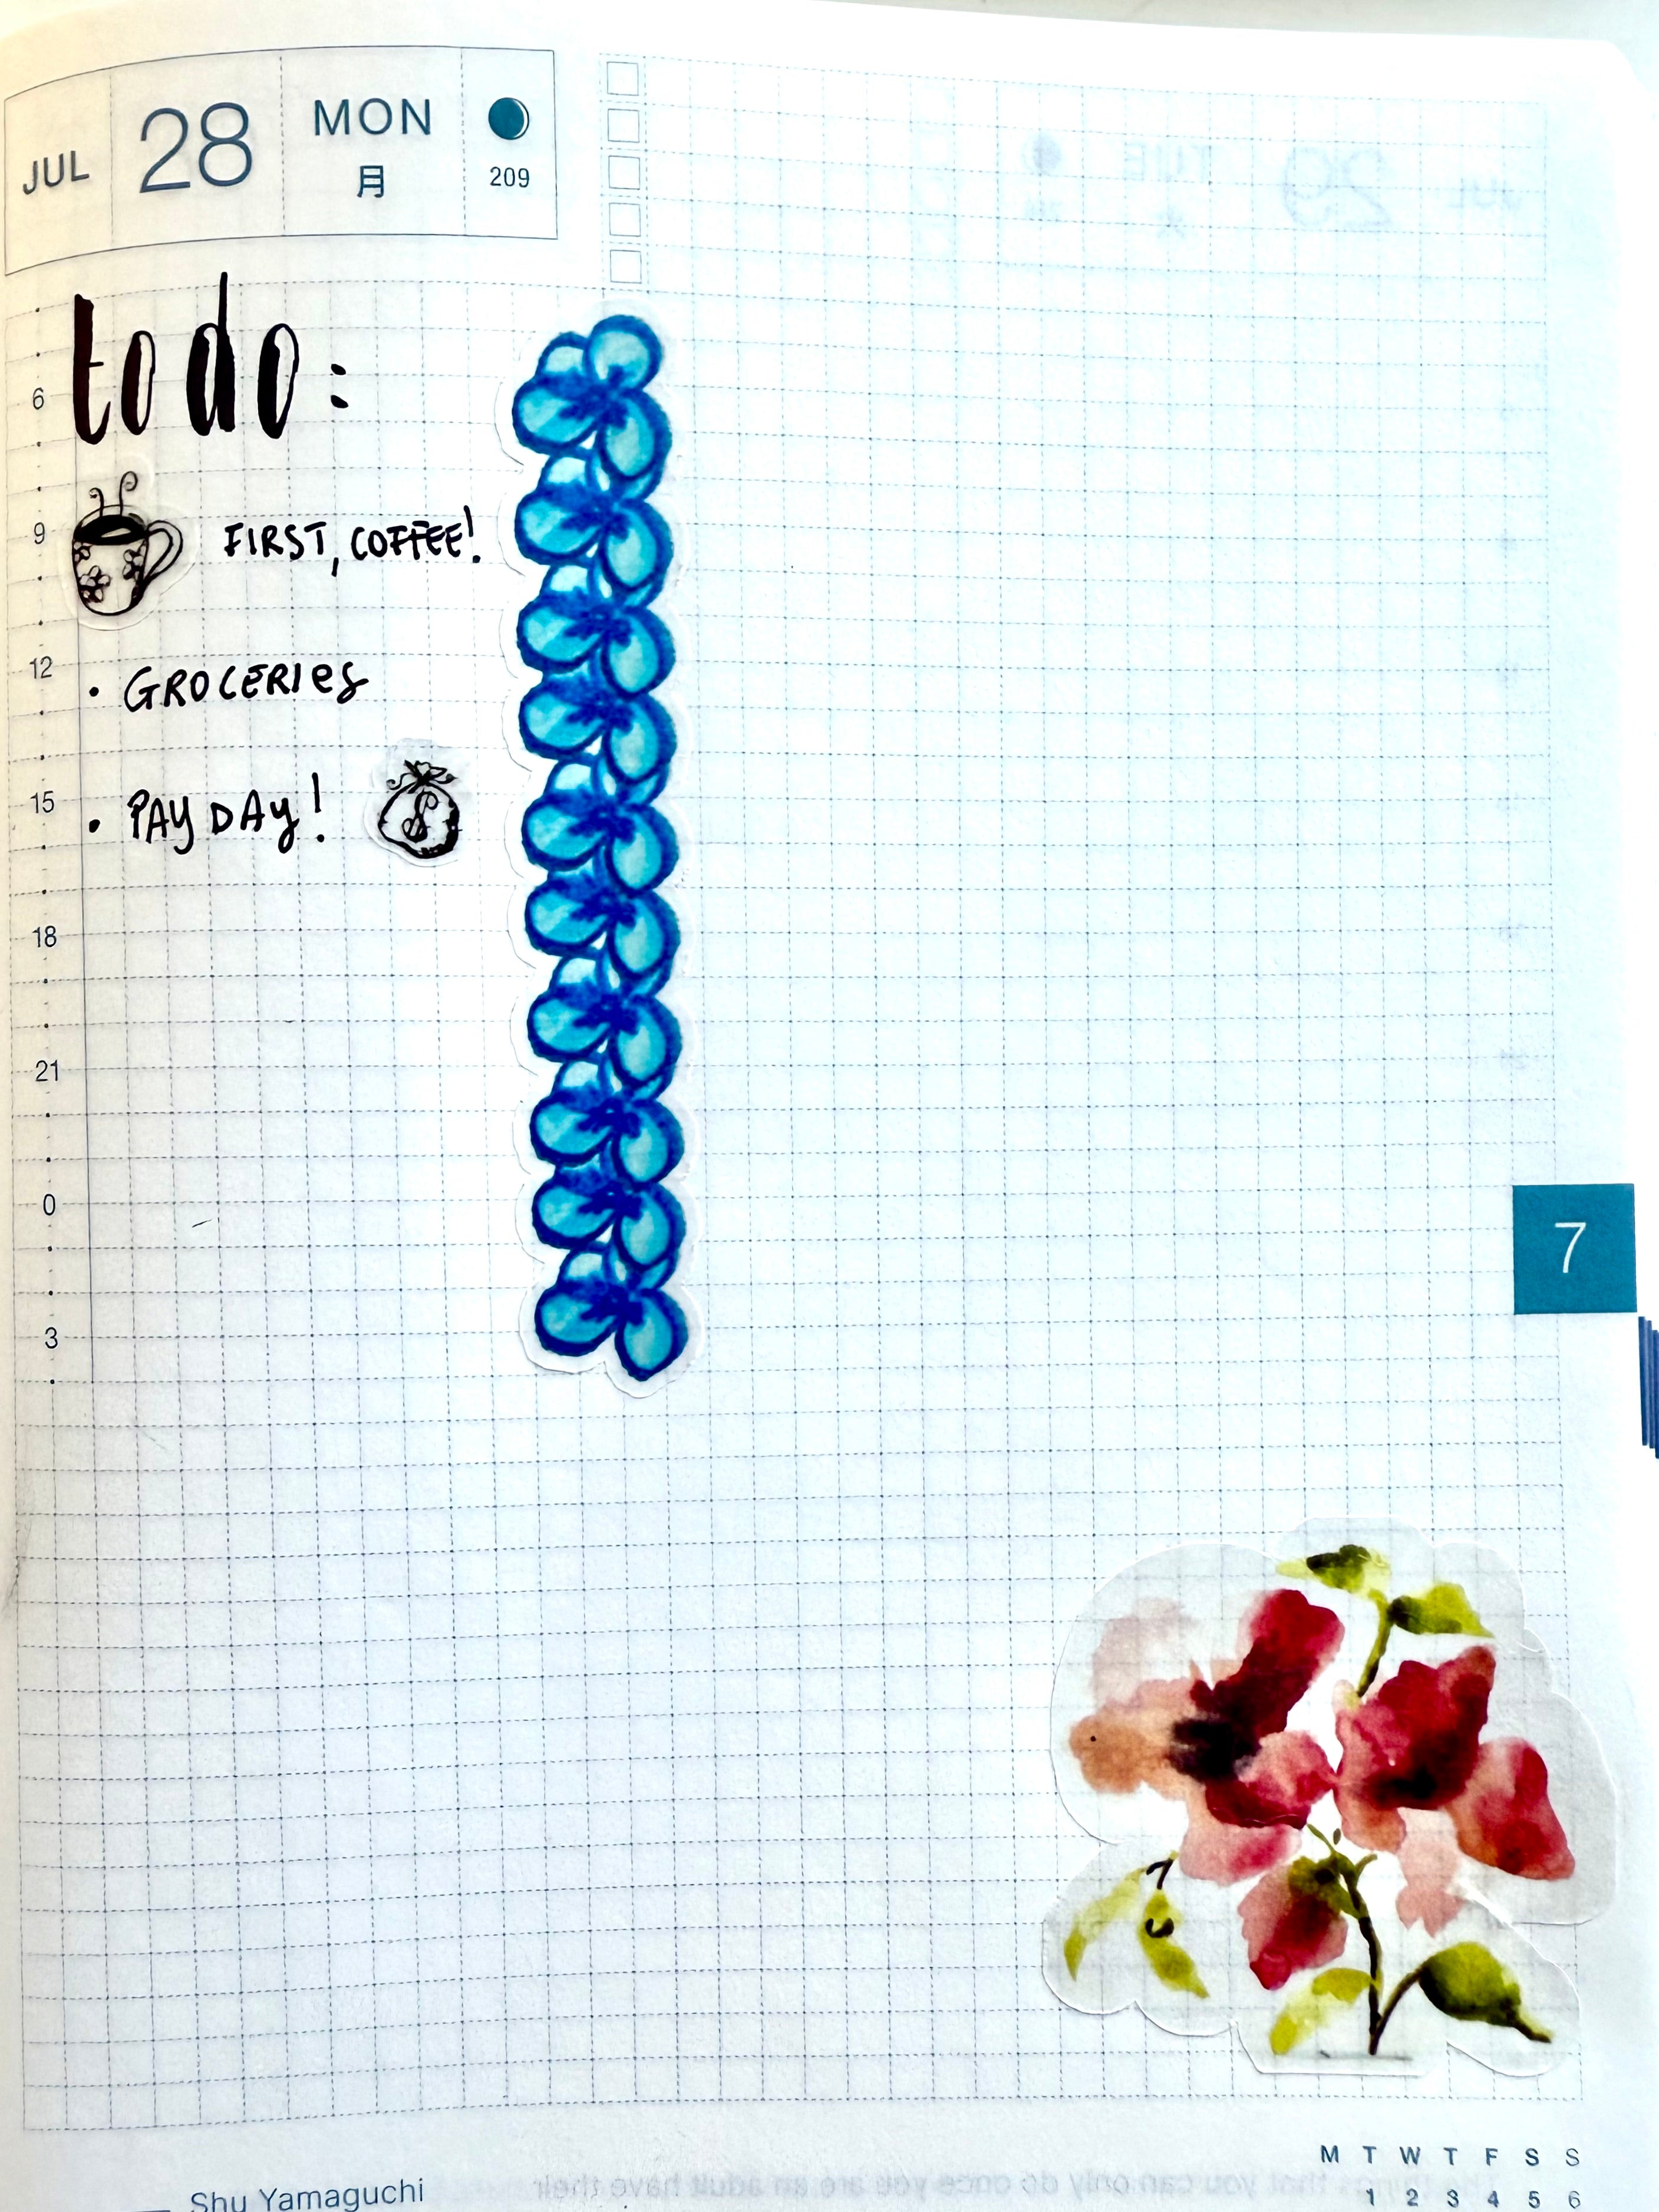 JUL 28 MON 月 209
to do:
6
FIRST, COFFEE!
9
12
• GROCERIES
15
• PAY DAY!
$
18
21
0
3
7
M T W T F S S
1 2 3 4 5 6
Shu Yamaguchi